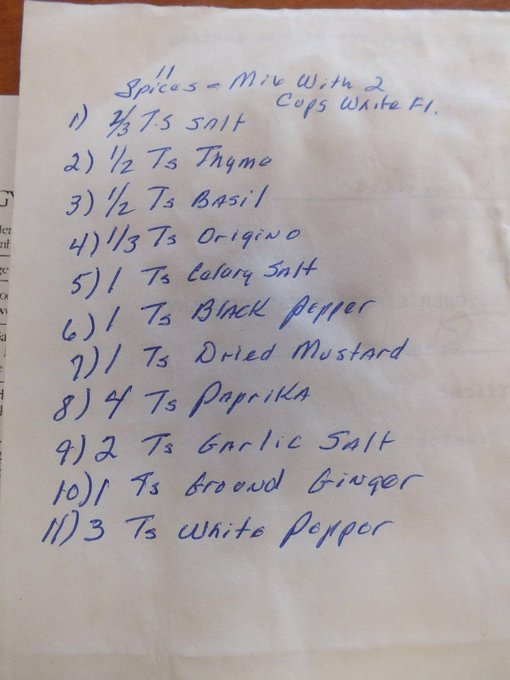 11
Spices = Mix With 2
Cups White Fl.
1) 2/3 TS SAlt
2) 1/2 Ts Thyme
3) 1/2 Ts BAsil
4) 1/3 Ts Origino
5) 1 Ts Celary SAlt
6) 1 Ts BlAcK Pepper
7) 1 Ts Dried MustArd
8) 4 Ts PAprikA
9) 2 Ts GArlic SAlt
10) 1 Ts Ground Ginger
11) 3 Ts White Pepper